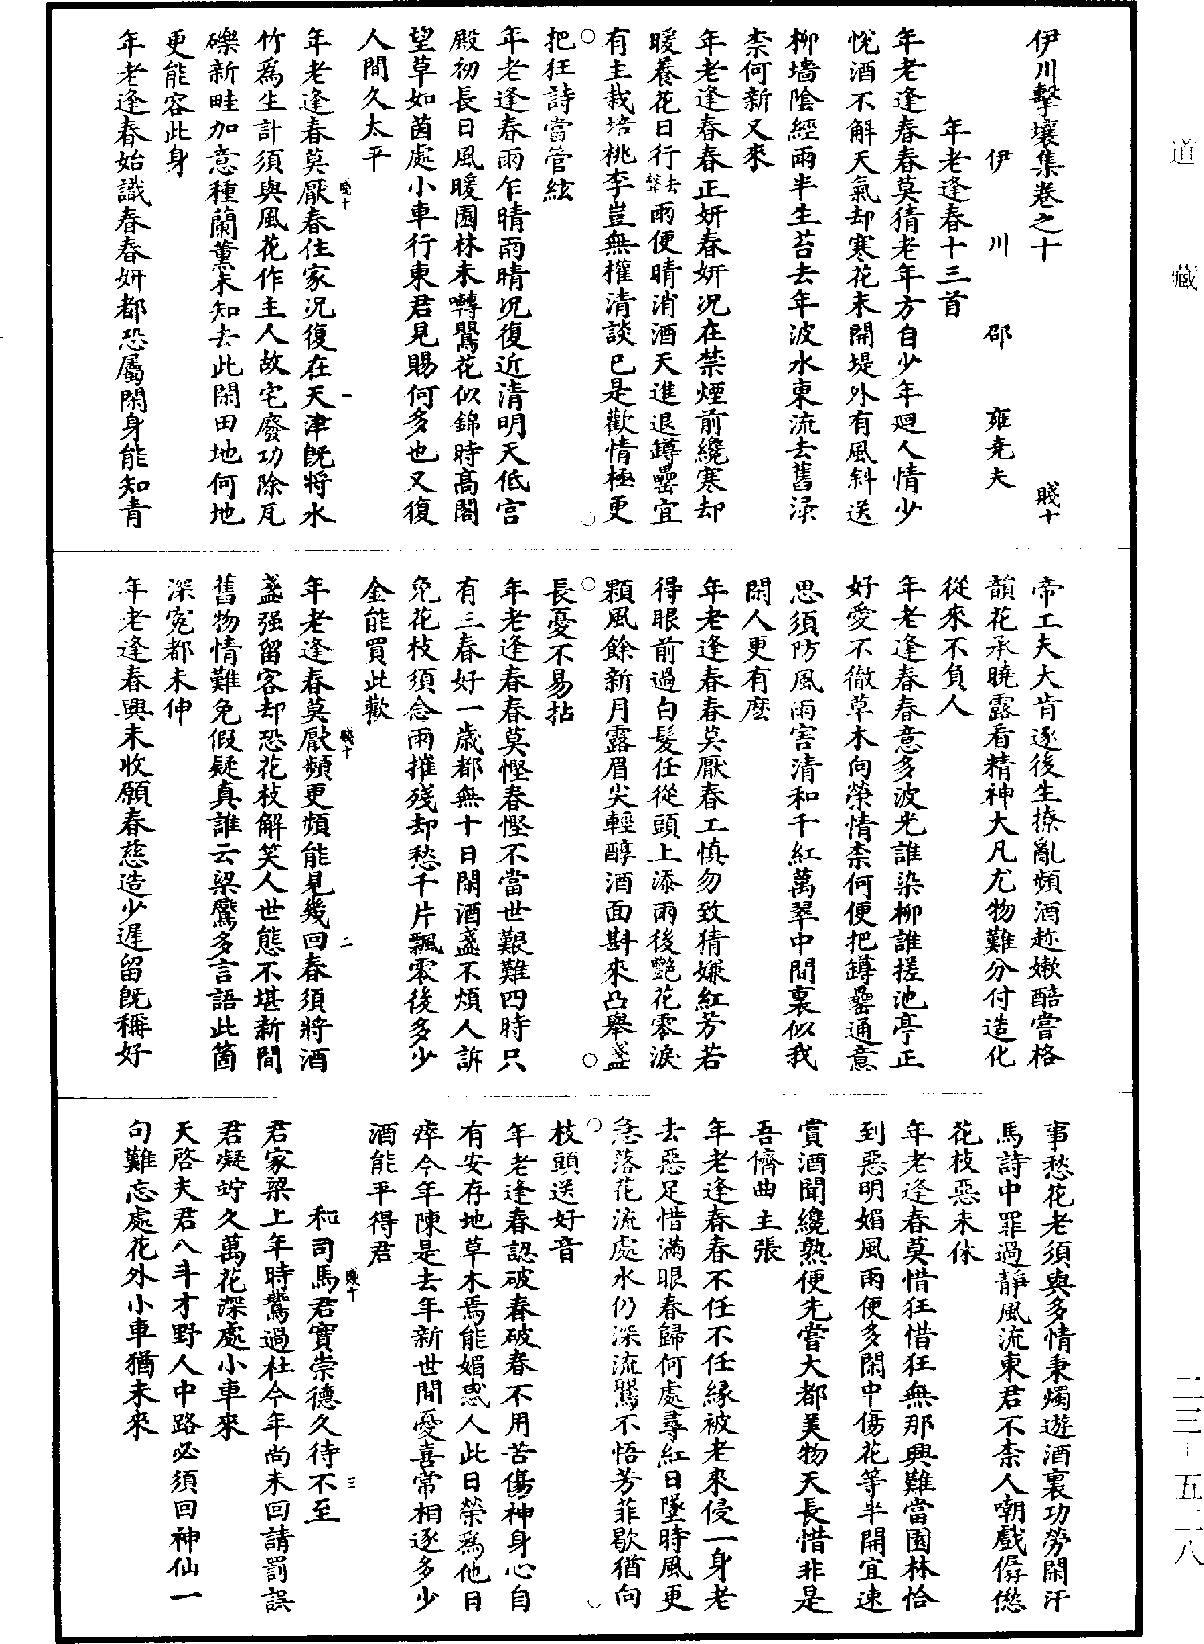 道藏
伊川擊壤集卷之十
賤十
伊川邵雍堯夫
年老逢春十三首
年老逢春春莫猜老年方自少年廻人情少
悅酒不解天氣却寒花未開堤外有風斜送
柳墻陰經雨半生苔去年波水東流去舊渌
柰何新又來
年老逢春春正妍春妍況在禁煙前纔寒却
暖養花日行去聲雨便晴消酒天進退罇罍宜
有主栽培桃李豈無權清談已是歡情極更
把狂詩當管絃
年老逢春雨乍晴雨晴況復近清明天低宮
殿初長日風暖園林未囀鸎花似錦時高閣
望草如茵處小車行東君見賜何多也又復
人間久太平
賤十
一
年老逢春莫厭春住家況復在天津旣將水
竹爲生計須與風花作主人故宅廢功除瓦
礫新畦加意種蘭薰未知去此閑田地何地
更能容此身
年老逢春始識春春妍都恐屬閑身能知青
帝工夫大肯逐後生撩亂頻酒趂嫩醅嘗格
韻花承曉露看精神大凡尤物難分付造化
從來不負人
年老逢春春意多波光誰染柳誰搓池亭正
好愛不徹草木向榮情柰何便把罇罍通意
思須防風雨害清和千紅萬翠中間裏似我
閑人更有麽
年老逢春春莫厭春工慎勿致猜嫌紅芳若
得眼前過白髮任從頭上添雨後艷花零淚
顆風餘新月露眉尖輕醇酒面斟來凸舉盞
長憂不易拈
年老逢春春莫慳春慳不當世艱難四時只
有三春好一歲都無十日閑酒盞不煩人訴
免花枝須念雨摧殘却愁千片飄零後多少
金能買此歡
賤十
二
年老逢春莫厭頻更頻能見幾回春須將酒
盞强留客却恐花枝解笑人世態不堪新間
舊物情難免假疑真誰云梁鷰多言語此箇
深冤都未伸
年老逢春興未收願春慈造少遲留旣稱好
事愁花老須與多情秉燭遊酒裏功勞閑汗
馬詩中罪過靜風流東君不柰人嘲戲僝僽
花枝惡未休
年老逢春莫惜狂惜狂無那興難當園林恰
到惡明媚風雨便多閑中傷花等半開宜速
賞酒聞纔熟便先嘗大都美物天長惜非是
吾儕曲主張
年老逢春春不任不任緣被老來侵一身老
去惡足惜滿眼春歸何處尋紅日墜時風更
急落花流處水仍深流鸎不悟芳菲歇猶向
枝頭送好音
年老逢春認破春破春不用苦傷神身心自
有安存地草木焉能媚惑人此日榮爲他日
瘁今年陳是去年新世間憂喜常相逐多少
酒能平得君
賤十
三
和司馬君實崇德久待不至
君家梁上年時鷰過社今年尚未回請罰誤
君凝竚久萬花深處小車來
天啓夫君八斗才野人中路必須回神仙一
句難忘處花外小車猶未來
二三-五二八